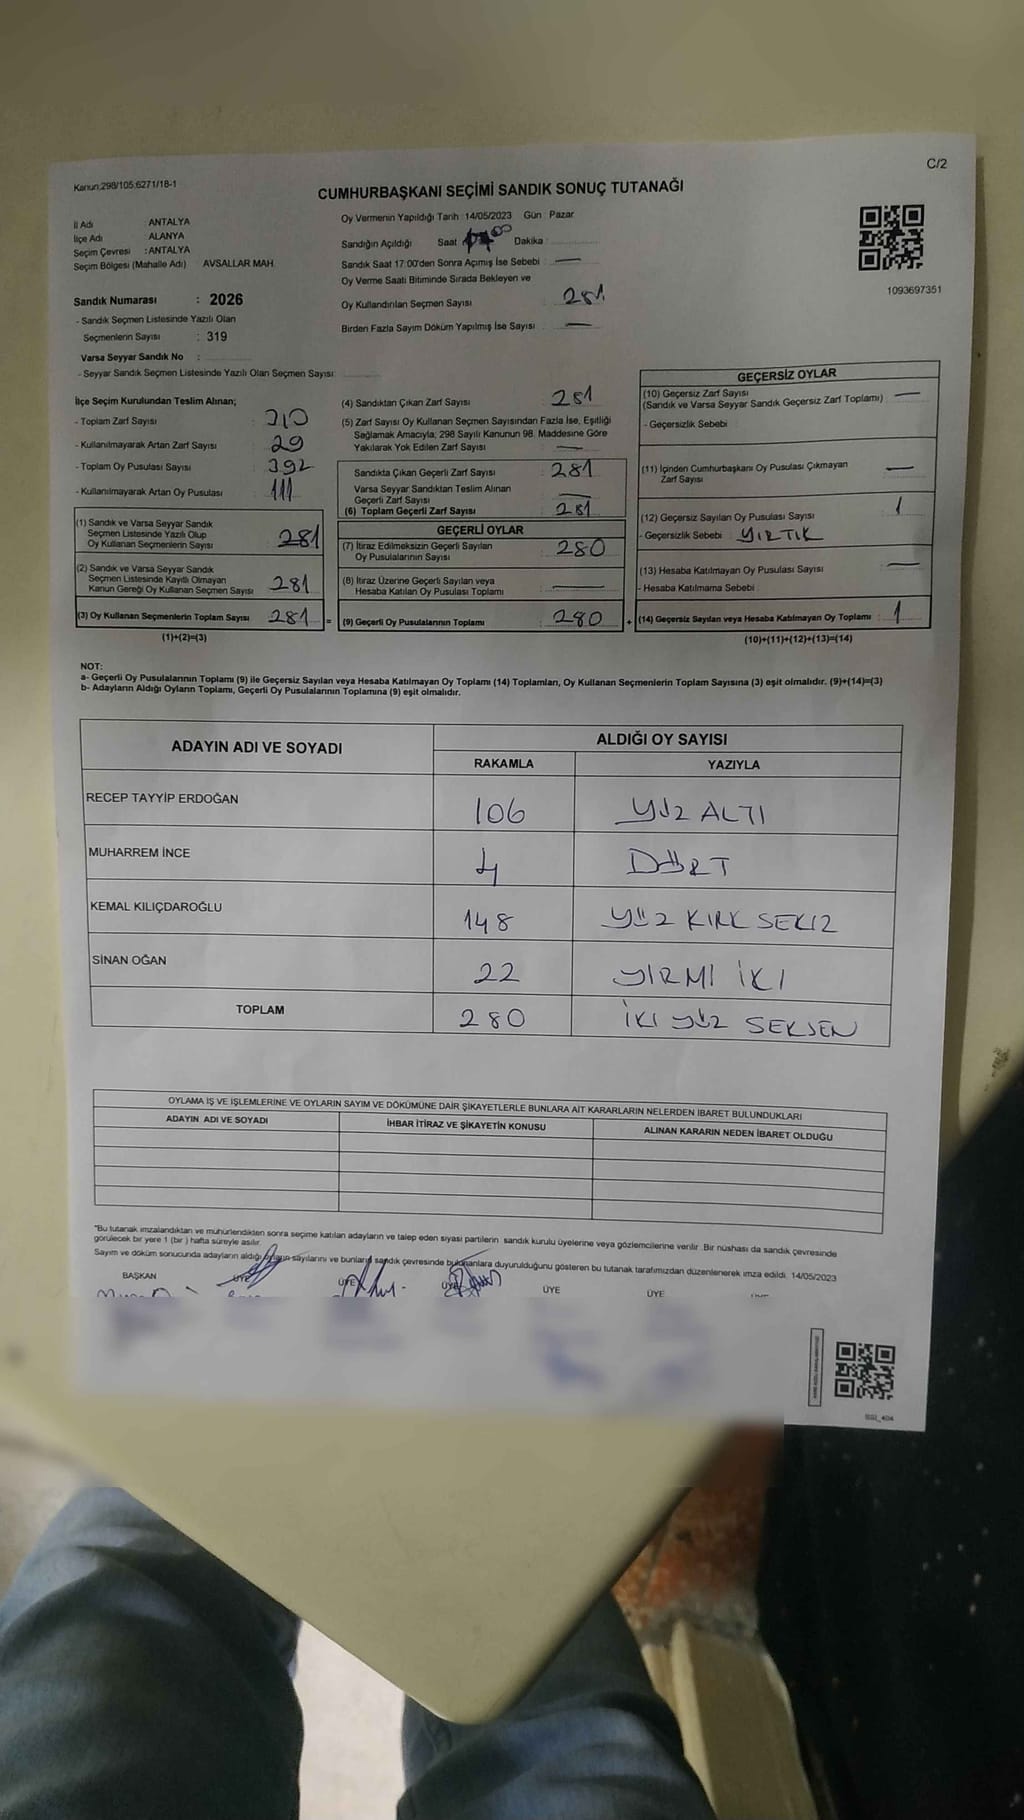 C/2
Kanun;298/105;6271/18-1
CUMHURBAŞKANI SEÇİMİ SANDIK SONUÇ TUTANAĞI
İl Adı : ANTALYA
İlçe Adı : ALANYA
Seçim Çevresi : ANTALYA
Seçim Bölgesi (Mahalle Adı) AVSALLAR MAH.
Sandık Numarası : 2026
- Sandık Seçmen Listesinde Yazılı Olan
Seçmenlerin Sayısı : 319
Varsa Seyyar Sandık No :
- Seyyar Sandık Seçmen Listesinde Yazılı Olan Seçmen Sayısı
Oy Vermenin Yapıldığı Tarih : 14/05/2023 Gün : Pazar
Sandığın Açıldığı Saat Dakika :
Sandık Saat 17:00'den Sonra Açımış İse Sebebi : —
Oy Verme Saati Bitiminde Sırada Bekleyen ve
Oy Kullandırılan Seçmen Sayısı 281
Birden Fazla Sayım Döküm Yapılmış İse Sayısı : —
1093697351
İlçe Seçim Kurulundan Teslim Alınan;
- Toplam Zarf Sayısı :
- Kullanılmayarak Artan Zarf Sayısı : 29
- Toplam Oy Pusulası Sayısı : 392
- Kullanılmayarak Artan Oy Pusulası : 111
(1) Sandık ve Varsa Seyyar Sandık
Seçmen Listesinde Yazılı Olup
Oy Kullanan Seçmenlerin Sayısı 281
(2) Sandık ve Varsa Seyyar Sandık
Seçmen Listesinde Kayıtlı Olmayan
Kanun Gereği Oy Kullanan Seçmen Sayısı : 281
(3) Oy Kullanan Seçmenlerin Toplam Sayısı : 281 =
(1)+(2)=(3)
(4) Sandıktan Çıkan Zarf Sayısı : 281
(5) Zarf Sayısı Oy Kullanan Seçmen Sayısından Fazla İse, Eşitliği
Sağlamak Amacıyla, 298 Sayılı Kanunun 98. Maddesine Göre
Yakılarak Yok Edilen Zarf Sayısı : —
Sandıkta Çıkan Geçerli Zarf Sayısı : 281
Varsa Seyyar Sandıktan Teslim Alınan
Geçerli Zarf Sayısı : —
(6) Toplam Geçerli Zarf Sayısı : 281
GEÇERLİ OYLAR
(7) İtiraz Edilmeksizin Geçerli Sayılan
Oy Pusulalarının Sayısı : 280
(8) İtiraz Üzerine Geçerli Sayılan veya
Hesaba Katılan Oy Pusulası Toplamı : —
(9) Geçerli Oy Pusulalarının Toplamı : 280 +
GEÇERSİZ OYLAR
(10) Geçersiz Zarf Sayısı : —
(Sandık ve Varsa Seyyar Sandık Geçersiz Zarf Toplamı)
- Geçersizlik Sebebi :
(11) İçinden Cumhurbaşkanı Oy Pusulası Çıkmayan
Zarf Sayısı : —
(12) Geçersiz Sayılan Oy Pusulası Sayısı : 1
- Geçersizlik Sebebi : YIRTIK
(13) Hesaba Katılmayan Oy Pusulası Sayısı : —
- Hesaba Katılmama Sebebi :
(14) Geçersiz Sayılan veya Hesaba Katılmayan Oy Toplamı : 1
(10)+(11)+(12)+(13)=(14)
NOT:
a- Geçerli Oy Pusulalarının Toplamı (9) ile Geçersiz Sayılan veya Hesaba Katılmayan Oy Toplamı (14) Toplamları, Oy Kullanan Seçmenlerin Toplam Sayısına (3) eşit olmalıdır. (9)+(14)=(3)
b- Adayların Aldığı Oyların Toplamı, Geçerli Oy Pusulalarının Toplamına (9) eşit olmalıdır.
ADAYIN ADI VE SOYADI ALDIĞI OY SAYISI
RAKAMLA YAZIYLA
RECEP TAYYİP ERDOĞAN 106 YÜZ ALTI
MUHARREM İNCE 4 DÖRT
KEMAL KILIÇDAROĞLU 148 YÜZ KIRK SEKIZ
SİNAN OĞAN 22 YIRMI İKI
TOPLAM 280 İKI YÜZ SEKSEN
OYLAMA İŞ VE İŞLEMLERİNE VE OYLARIN SAYIM VE DÖKÜMÜNE DAİR ŞİKAYETLERLE BUNLARA AİT KARARLARIN NELERDEN İBARET BULUNDUKLARI
ADAYIN ADI VE SOYADI İHBAR İTİRAZ VE ŞİKAYETİN KONUSU ALINAN KARARIN NEDEN İBARET OLDUĞU
"Bu tutanak imzalandıktan ve mühürlendikten sonra seçime katılan adayların ve talep eden siyasi partilerin sandık kurulu üyelerine veya gözlemcilerine verilir. Bir nüshası da sandık çevresinde
görülecek bir yere 1 (bir ) hafta süreyle asılır.
Sayım ve döküm sonucunda adayların aldığı oyların sayılarını ve bunların sandık çevresinde bulunanlara duyurulduğunu gösteren bu tutanak tarafımızdan düzenlenerek imza edildi. 14/05/2023
BAŞKAN ÜYE ÜYE ÜYE ÜYE ÜYE